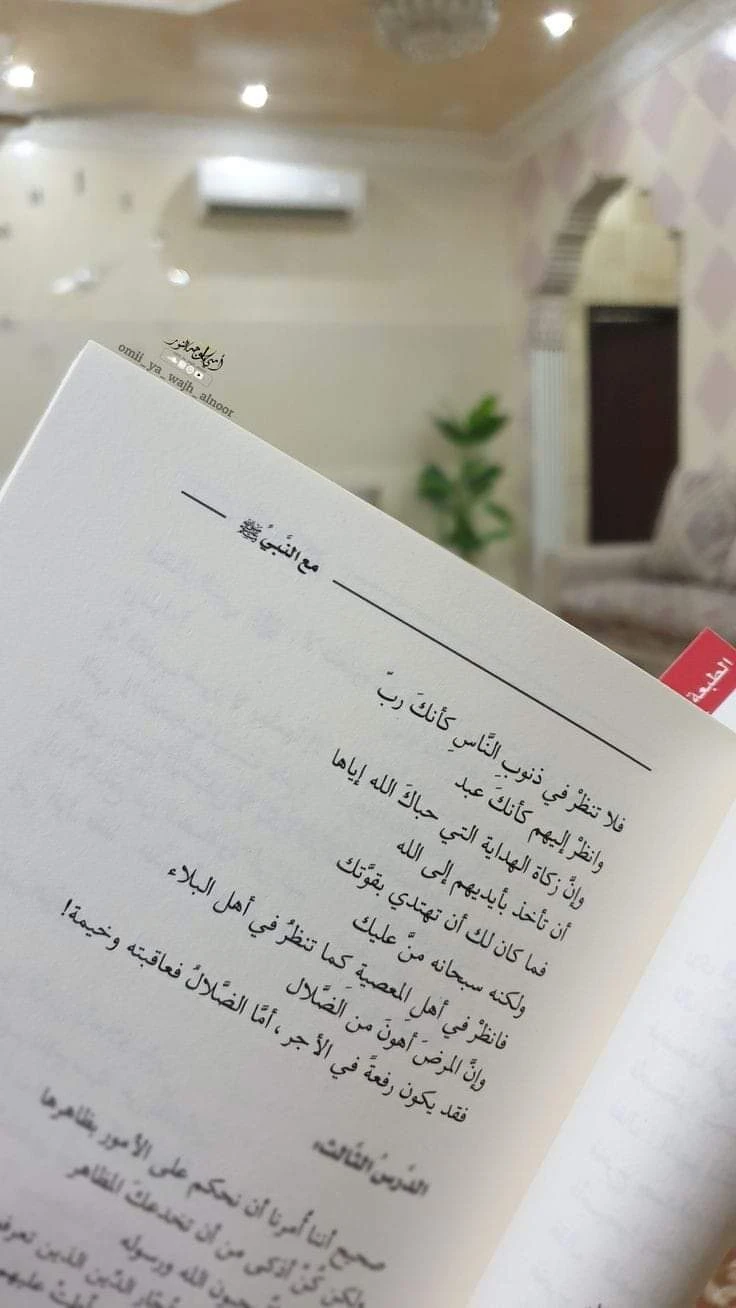 أمي يا وجه النور
omii_ya_wajh_alnoor
مع النَّبيِّ ﷺ
الطبعة
فلا تنظرْ في ذنوبِ النَّاسِ كأنكَ ربّ
وانظرْ إليهم كأنكَ عبد
وإنَّ زكاة الهداية التي حباكَ الله إياها
أن تأخذ بأيديهم إلى الله
فما كان لك أن تهتدي بقوَّتك
ولكنه سبحانه منَّ عليك
فانظرْ في أهلِ المعصية كما تنظرُ في أهل البلاء
وإنَّ المرضَ أهونَ من الضَّلال
فقد يكون رفعةً في الأجر، أمَّا الضَّلالُ فعاقبته وخيمة!
الدَّرسُ الثَّالث:
صحيح أننا أُمرنا أن نحكم على الأمور بظاهرها
ولكن كُنْ أذكى من أن تخدعكَ المظاهر
يحبون الله ورسوله
الدِّين الذين